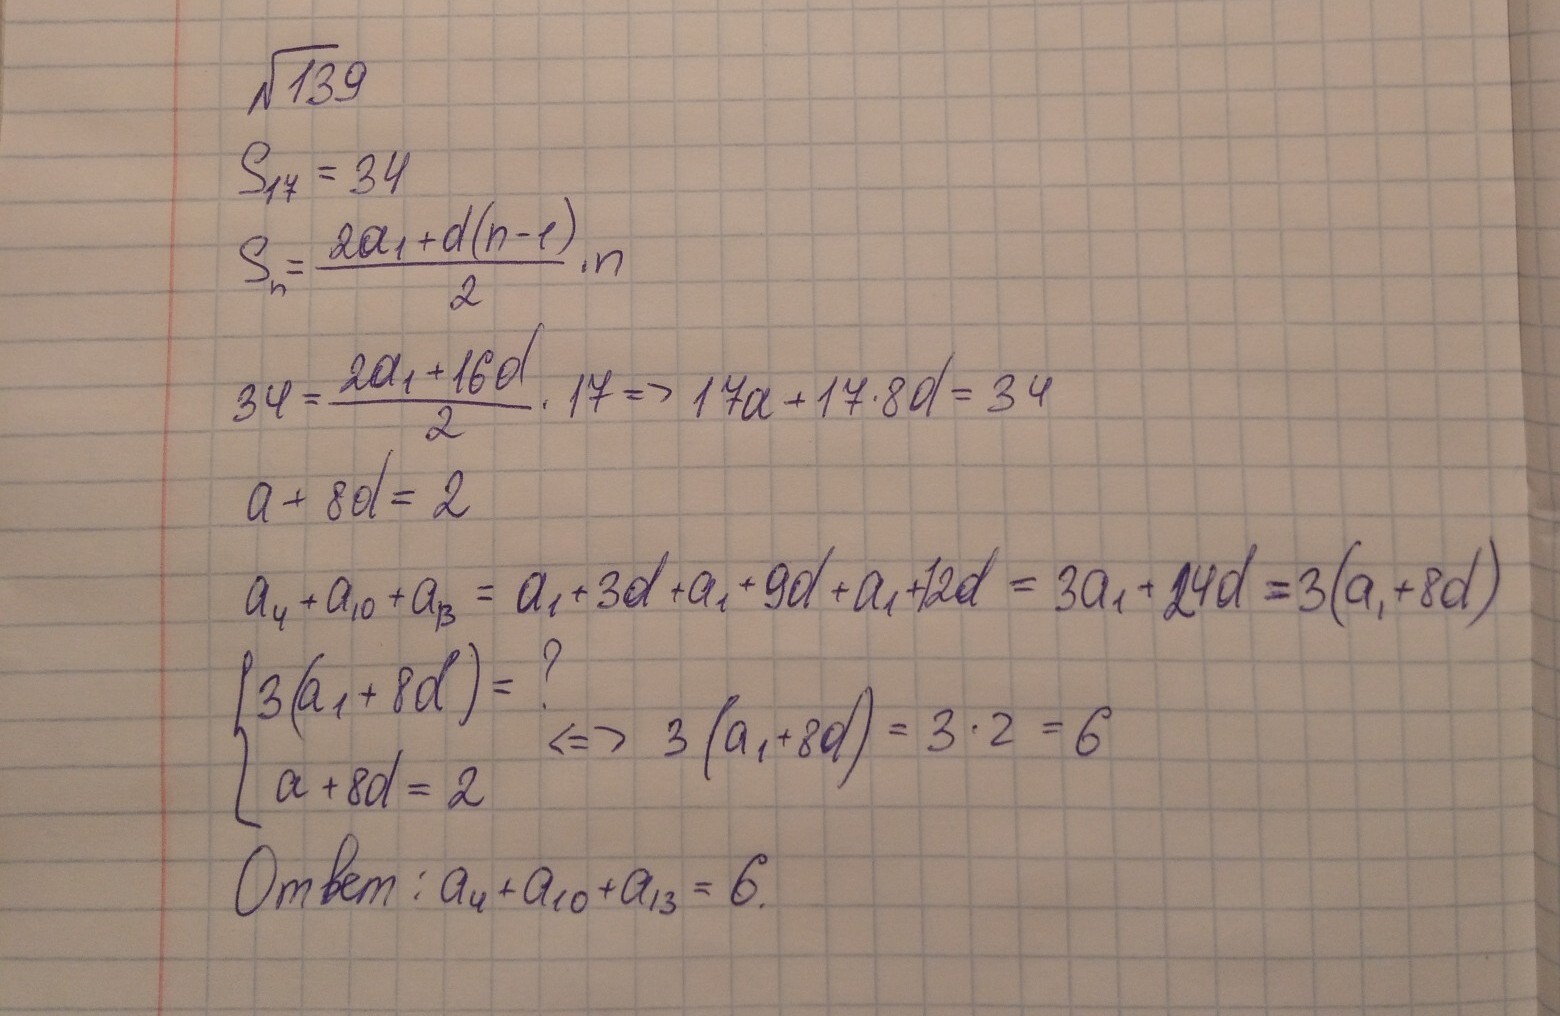 √139
S₁₇ = 34
Sₙ = (2a₁ + d(n-1))/2 · n
34 = (2a₁ + 16d)/2 · 17 => 17a + 17·8d = 34
a + 8d = 2
a₄ + a₁₀ + a₁₃ = a₁ + 3d + a₁ + 9d + a₁ + 12d = 3a₁ + 24d = 3(a₁ + 8d)
{ 3(a₁ + 8d) = ?
a + 8d = 2 <=> 3(a₁ + 8d) = 3·2 = 6
Ответ: a₄ + a₁₀ + a₁₃ = 6.